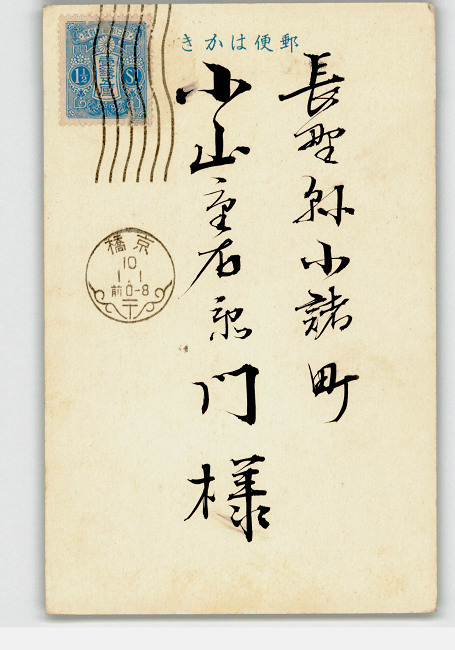 郵便はかき
長野縣小諸町
小山重右衛門様
1½ Sn
京橋
10
1.1
前0-8